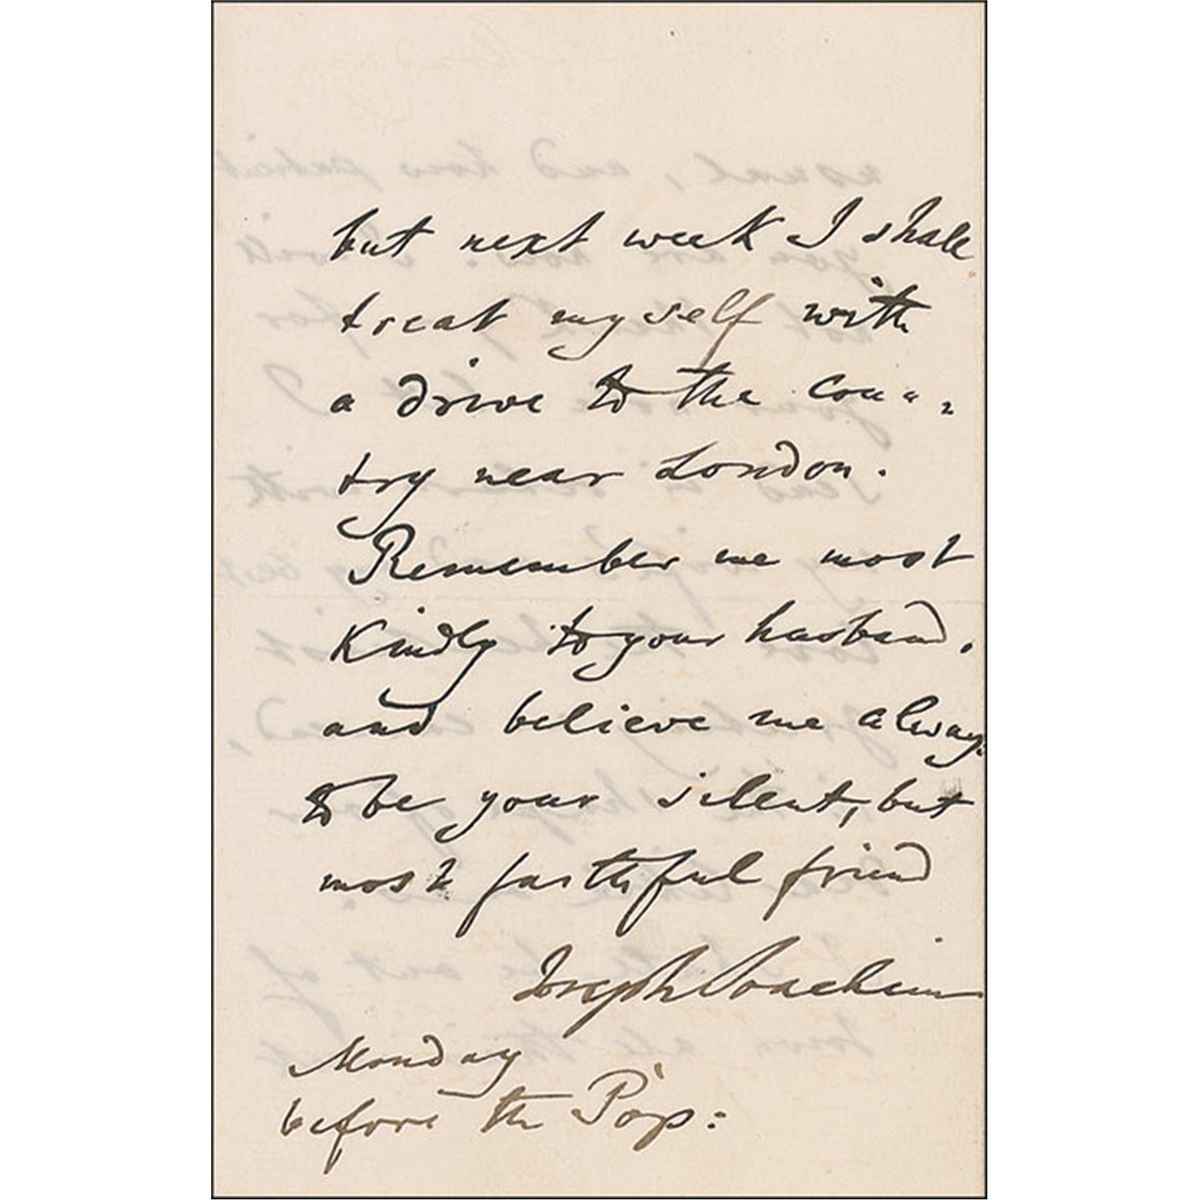 but next week I shall
treat myself with
a drive to the coun-
try near London.
Remember me most
kindly to your husband,
and believe me always
to be your silent, but
most faithful friend
Joseph Joachim
Monday
before the Pop: